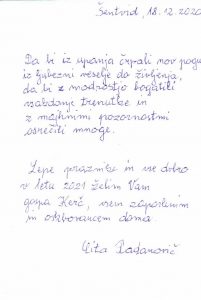 Šentvid, 18.12.2020
Da bi iz upanja črpali nov pogum
iz ljubezni veselje do življenja,
da bi z modrostjo bogatili
vsakdanje trenutke in
z majhnimi pozornostmi
osrečili mnoge.
Lepe praznike in vse dobro
v letu 2021 želim Vam
gospa Kerč, vsem zaposlenim
in oskrbovancem doma.
Vita Radanovič